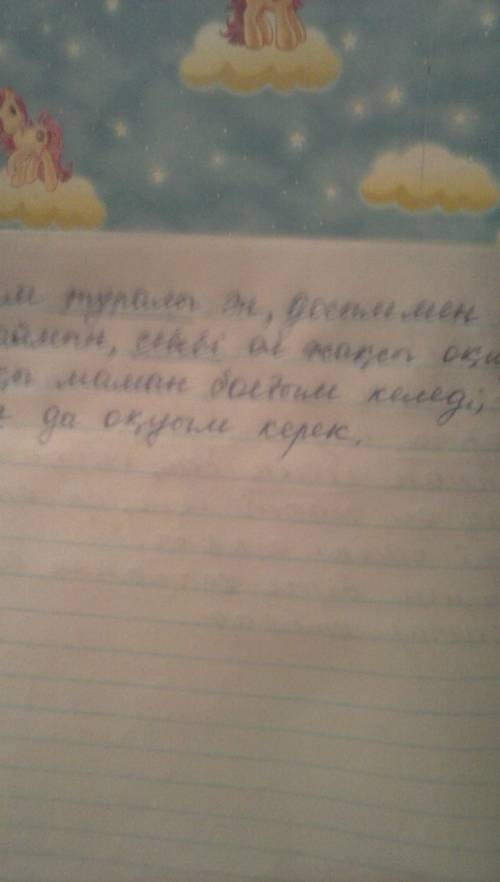 туралы ән, досыммен
себебі ол жақсы оқи
маман болғым келеді,
да оқуым керек.